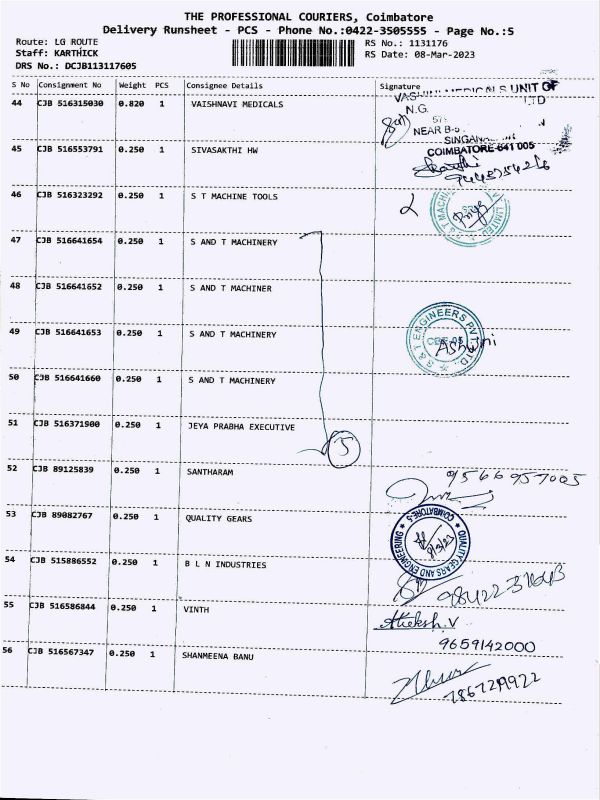 THE PROFESSIONAL COURIERS, Coimbatore
Delivery Runsheet - PCS - Phone No.:0422-3505555 - Page No.:5
Route: LG ROUTE
RS No.: 1131176
Staff: KARTHICK
RS Date: 08-Mar-2023
DRS No.: DCJB113117605
S No Consignment No Weight PCS Consignee Details Signature
44 CJB 516315030 0.820 1 VAISHNAVI MEDICALS
UNIT OF
LTD
N.G.
NEAR B-
COIMBATORE-641 005
45 CJB 516553791 0.250 1 SIVASAKTHI HW
46 CJB 516323292 0.250 1 S T MACHINE TOOLS
47 CJB 516641654 0.250 1 S AND T MACHINERY
48 CJB 516641652 0.250 1 S AND T MACHINER
49 CJB 516641653 0.250 1 S AND T MACHINERY
S & T ENGINEERS PVT LTD
Ashwini
50 CJB 516641660 0.250 1 S AND T MACHINERY
51 CJB 516371900 0.250 1 JEYA PRABHA EXECUTIVE
5
52 CJB 89125839 0.250 1 SANTHARAM
9566957005
53 CJB 89082767 0.250 1 QUALITY GEARS
QUALITY GEARS AND ENGINEERING
COIMBATORE-5
8/3/23
54 CJB 515886552 0.250 1 B L N INDUSTRIES
55 CJB 516586844 0.250 1 VINTH
9659142000
56 CJB 516567347 0.250 1 SHANMEENA BANU